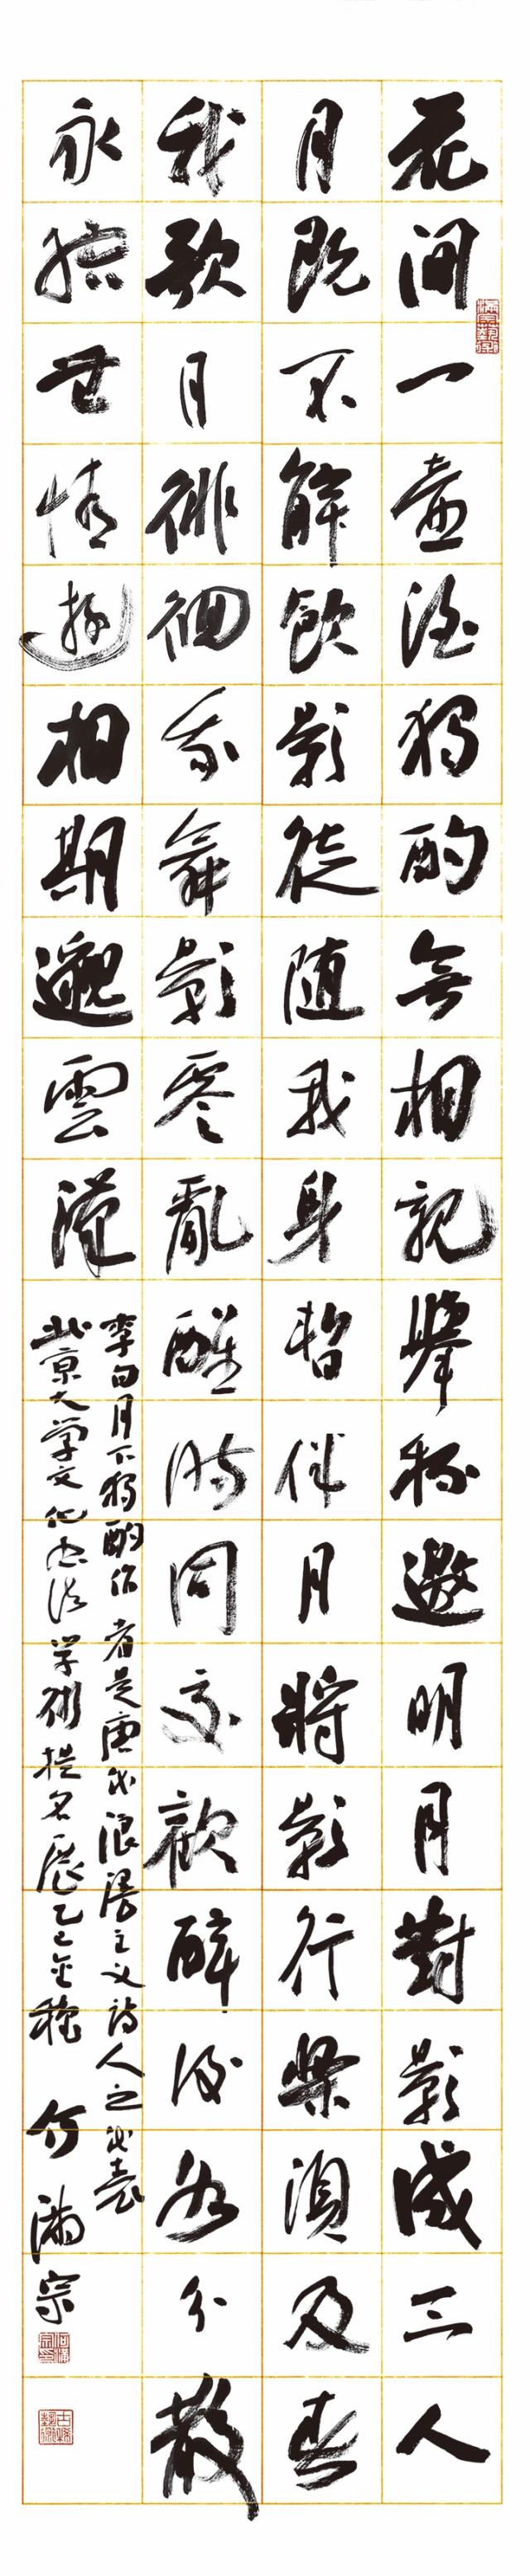 花間一壺酒獨酌無相親舉杯邀明月對影成三人
月既不解飲影徒隨我身暫伴月將影行樂須及春
我歌月徘徊我舞影零亂醒時同交歡醉後各分散
永結世情遊相期邈雲漢
李白月下獨酌作者是唐代浪漫主义詩人之代表
北京大学文化書法学術提名展乙巳金穐
何滿宗